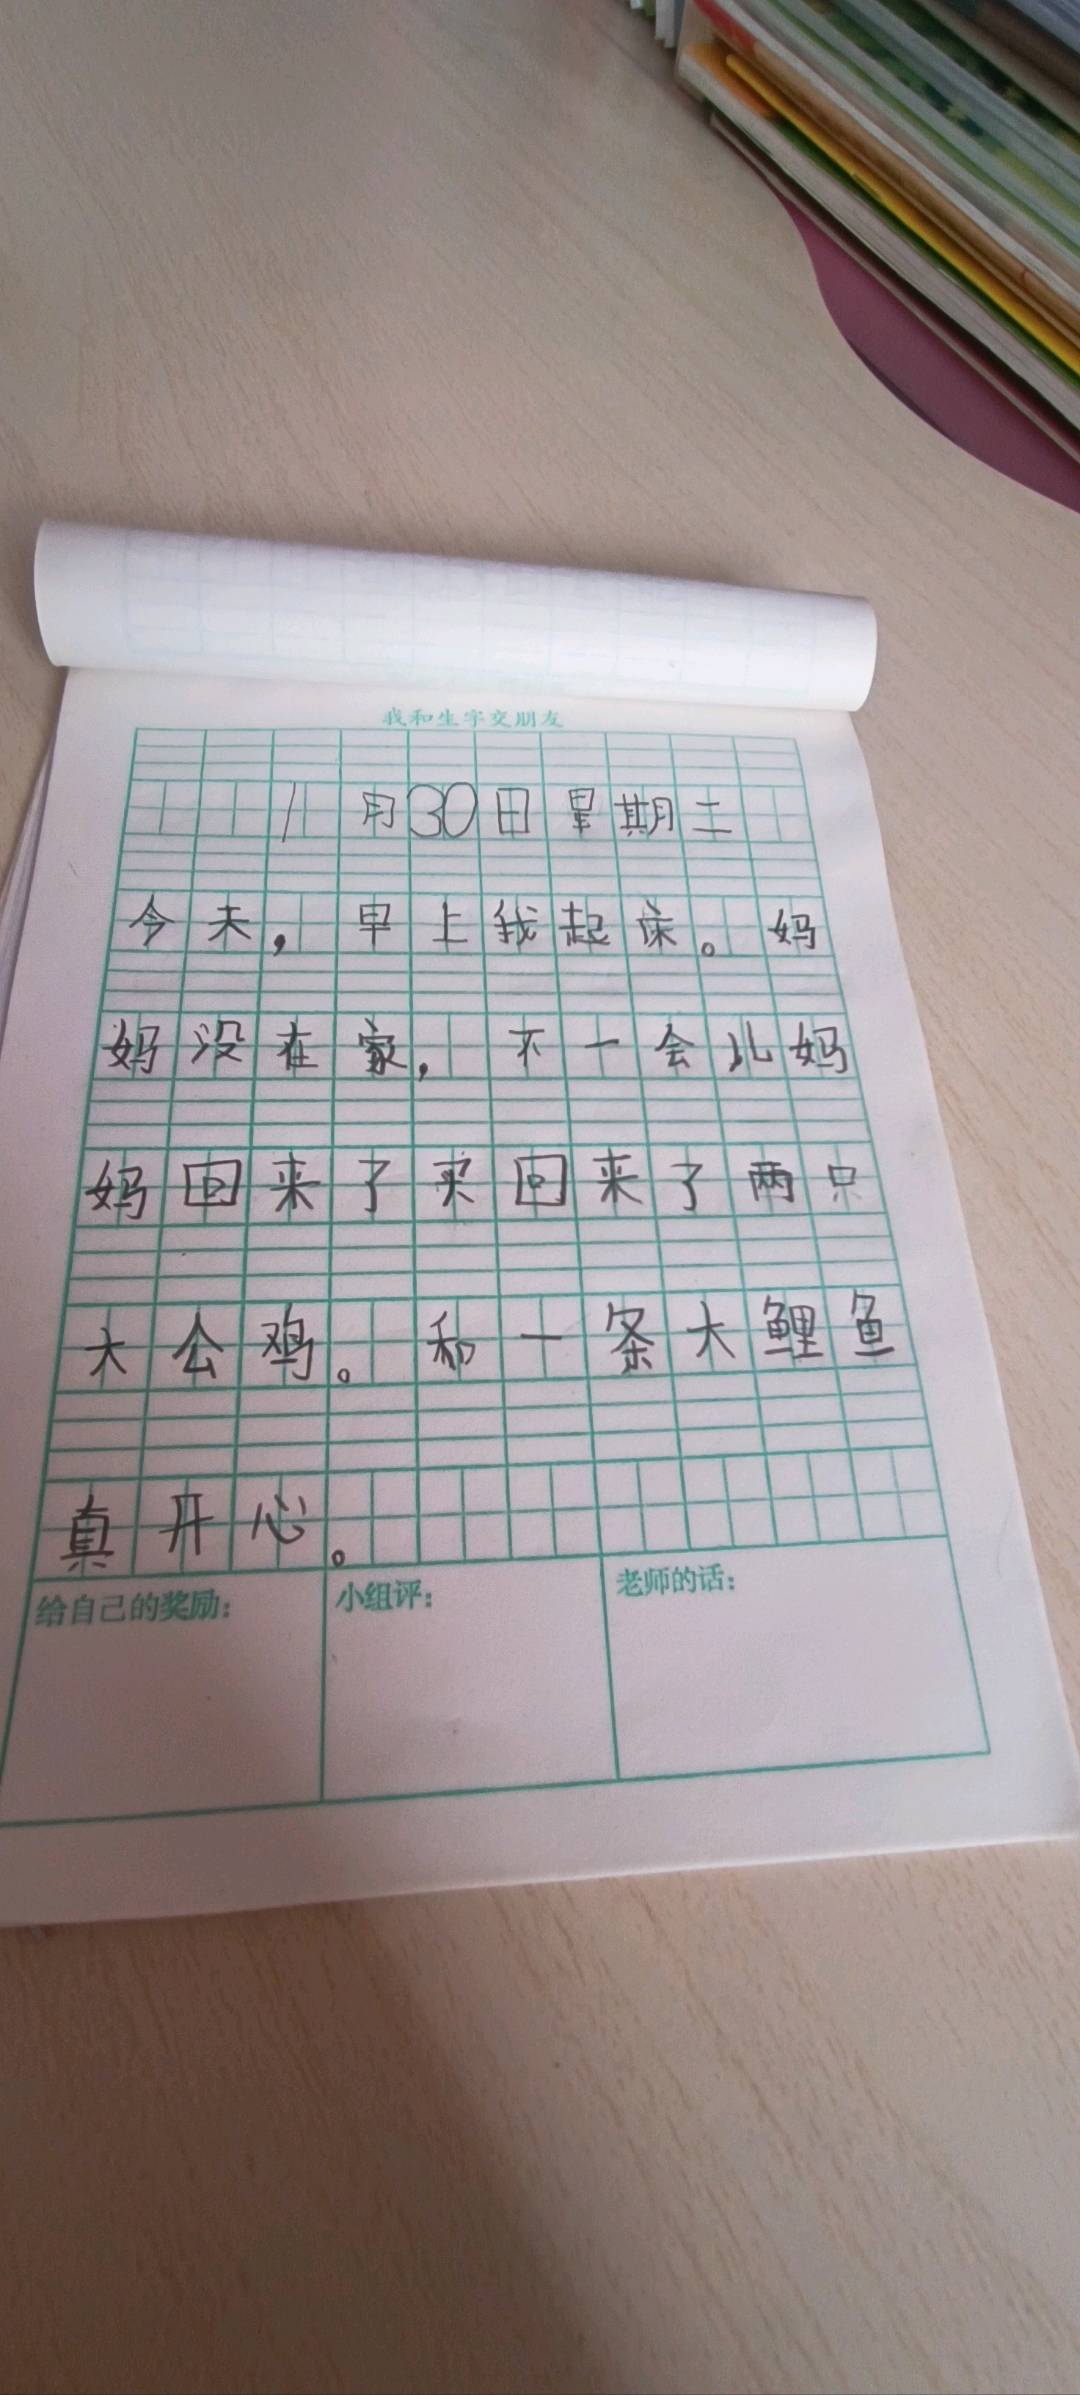 我和生字交朋友
1月30日星期二
今天，早上我起床。妈
妈没在家，不一会儿妈
妈回来了买回来了两只
大公鸡。和一条大鲤鱼
真开心。
给自己的奖励：
小组评：
老师的话：